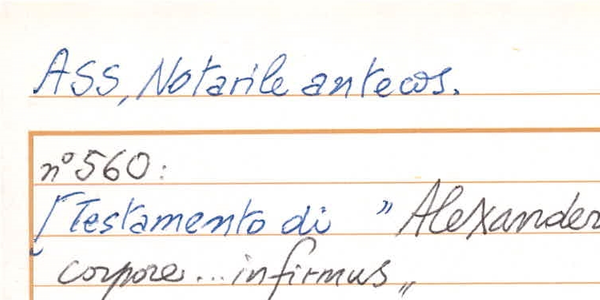 ASS, Notarile antecos.
n° 560:
[Testamento di "Alexander
corpore...infirmus"